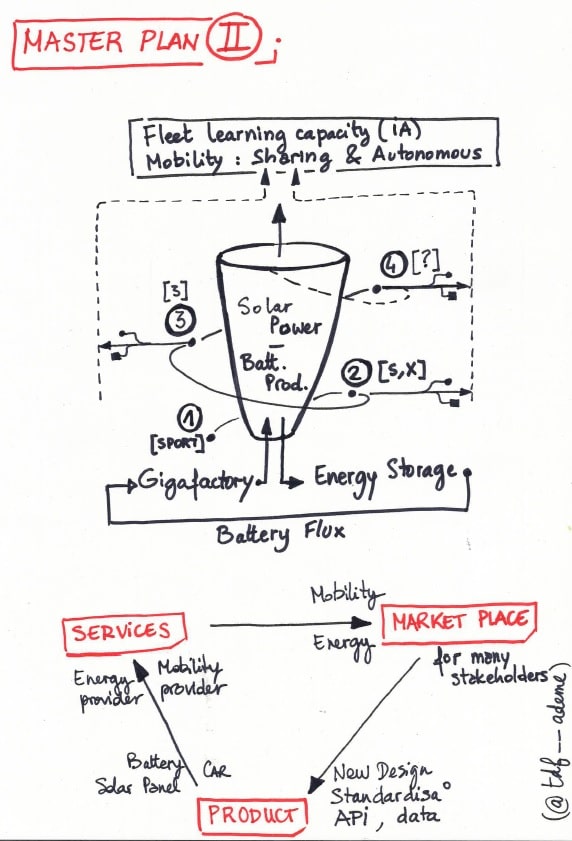 MASTER PLAN II ;
Fleet learning capacity (IA)
Mobility : Sharing & Autonomous
4 [?]
[3]
3
Solar
Power
–
Batt.
Prod.
2 [S,X]
1
[SPORT]
Gigafactory
Energy Storage
Battery Flux
Mobility
SERVICES
MARKET PLACE
Energy
for many
stakeholders
Energy
provider
Mobility
provider
Battery
Solar Panel
CAR
New Design
Standardisa°
API, data
PRODUCT
(@tdf--ademe)